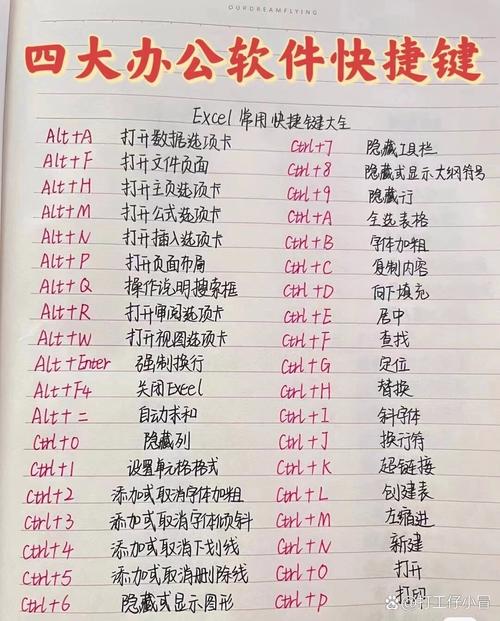 OURDREAMFLYING
四大办公软件快捷键
Excel 常用快捷键大全
Alt+A 打开数据选项卡
Alt+F 打开文件页面
Alt+H 打开主页选项卡
Alt+M 打开公式选项卡
Alt+N 打开插入选项卡
Alt+P 打开页面布局
Alt+Q 操作说明搜索框
Alt+R 打开审阅选项卡
Alt+W 打开视图选项卡
Alt+Enter 强制换行
Alt+F4 关闭Excel
Alt+= 自动求和
Ctrl+0 隐藏列
Ctrl+1 设置单元格格式
Ctrl+2 添加或取消字体加粗
Ctrl+3 添加或取消字体倾斜
Ctrl+4 添加或取消下划线
Ctrl+5 添加或取消删除线
Ctrl+6 隐藏或显示图形
Ctrl+7 隐藏工具栏
Ctrl+8 隐藏或显示大纲符号
Ctrl+9 隐藏行
Ctrl+A 全选表格
Ctrl+B 字体加粗
Ctrl+C 复制内容
Ctrl+D 向下填充
Ctrl+E 居中
Ctrl+F 查找
Ctrl+G 定位
Ctrl+H 替换
Ctrl+I 斜字体
Ctrl+J 换行符
Ctrl+K 超链接
Ctrl+L 创建表
Ctrl+M 左缩进
Ctrl+N 新建
Ctrl+O 打开
Ctrl+P 打印
@打工仔小冒